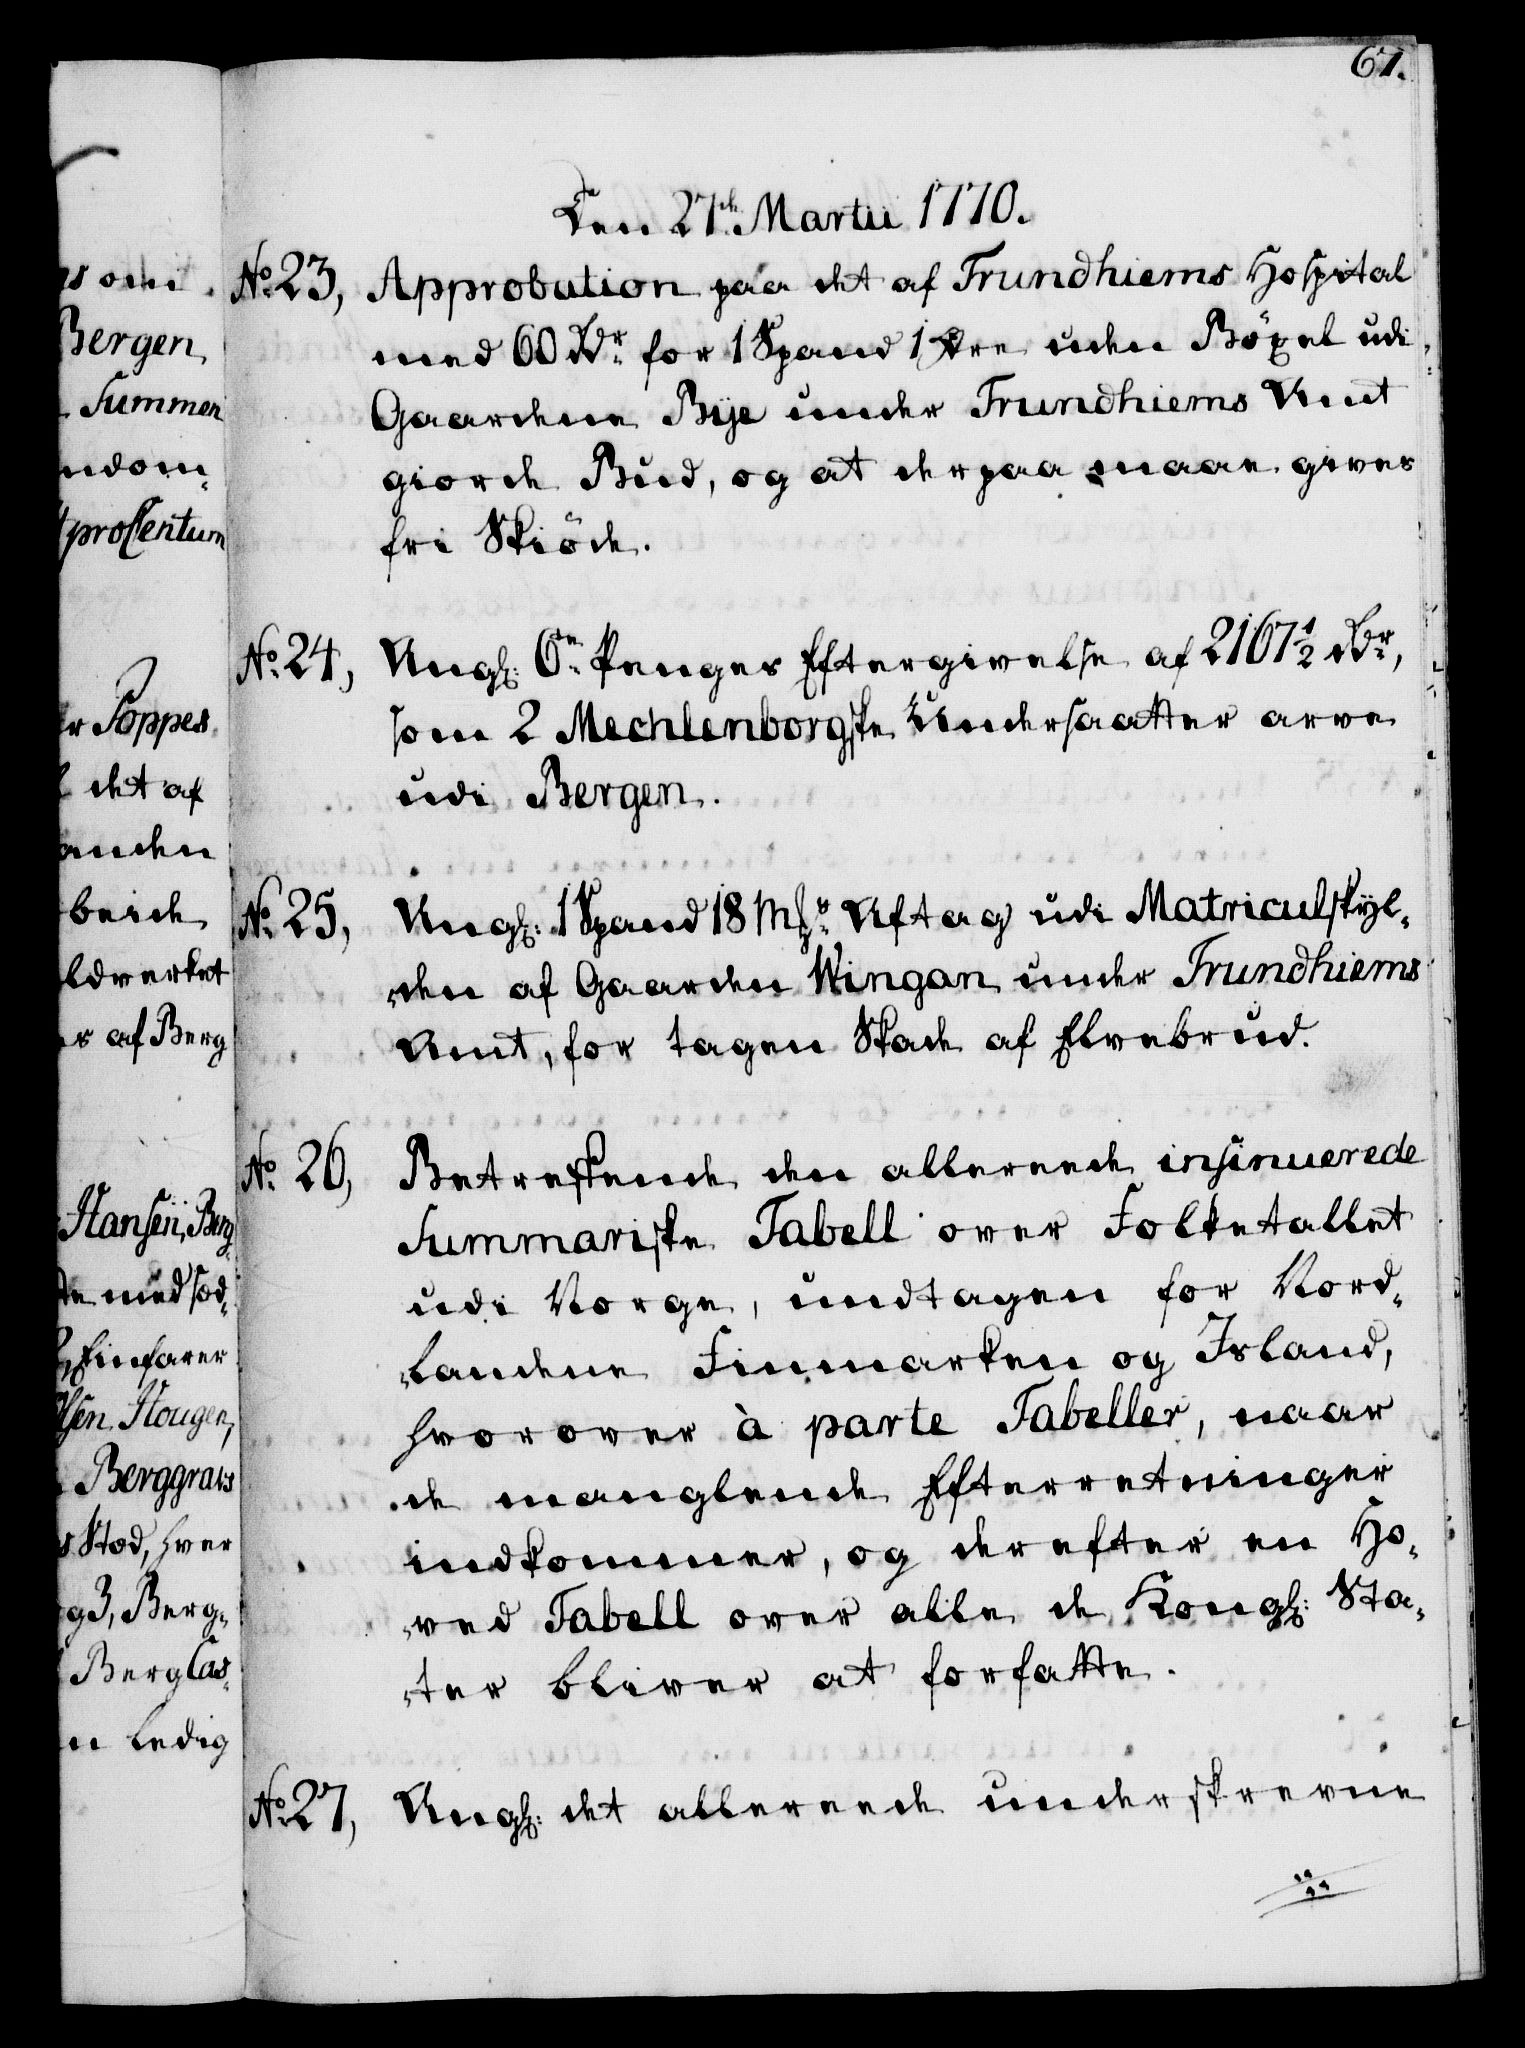 67.
Den 27de Martii 1770.
No. 23, Approbation paa det af Trundhiems Hospital
med 60 Rdr for 1 Spand 1 Øre uden Böxel udi
Gaardene Bye under Trundhiems Amt
giorde Bud, og at derpaa maae gives
fri Skiöde.
No. 24, Angl: 6te Penges Eftergivelse af 2167½ Rdr,
som 2 Mechlenborgske Undersaatter arve
udi Bergen.
No. 25, Angl: 1 Spand 18 Mkr Aftag udi Matriculskyl-
den af Gaarden Wingan under Trundhiems
Amt, for tagen Skade af Elvebrud.
No. 26, Betreffende den allereede insinuerede
Summariske Tabell over Folketallet
udi Norge, undtagen for Nord-
landene Finmarken og Island,
hvorover à parte Tabeller, naar
de manglende Efterretninger
indkommer, og derefter en Ho-
ved Tabell over alle de Kongl: Sta-
ter bliver at forfatte.
No. 27, Angl: det allereede underskrevne
s om
Bergen
Summen
ndom-
proCentum
r Soppes
det af
anden
beide
ldverket
s af Berg
Hansen, Berg-
te med sød-
Einfarer
lsen Hougen,
Berggravs
s Stod, hver
g3, Berg-
Berg Cas-
n ledig